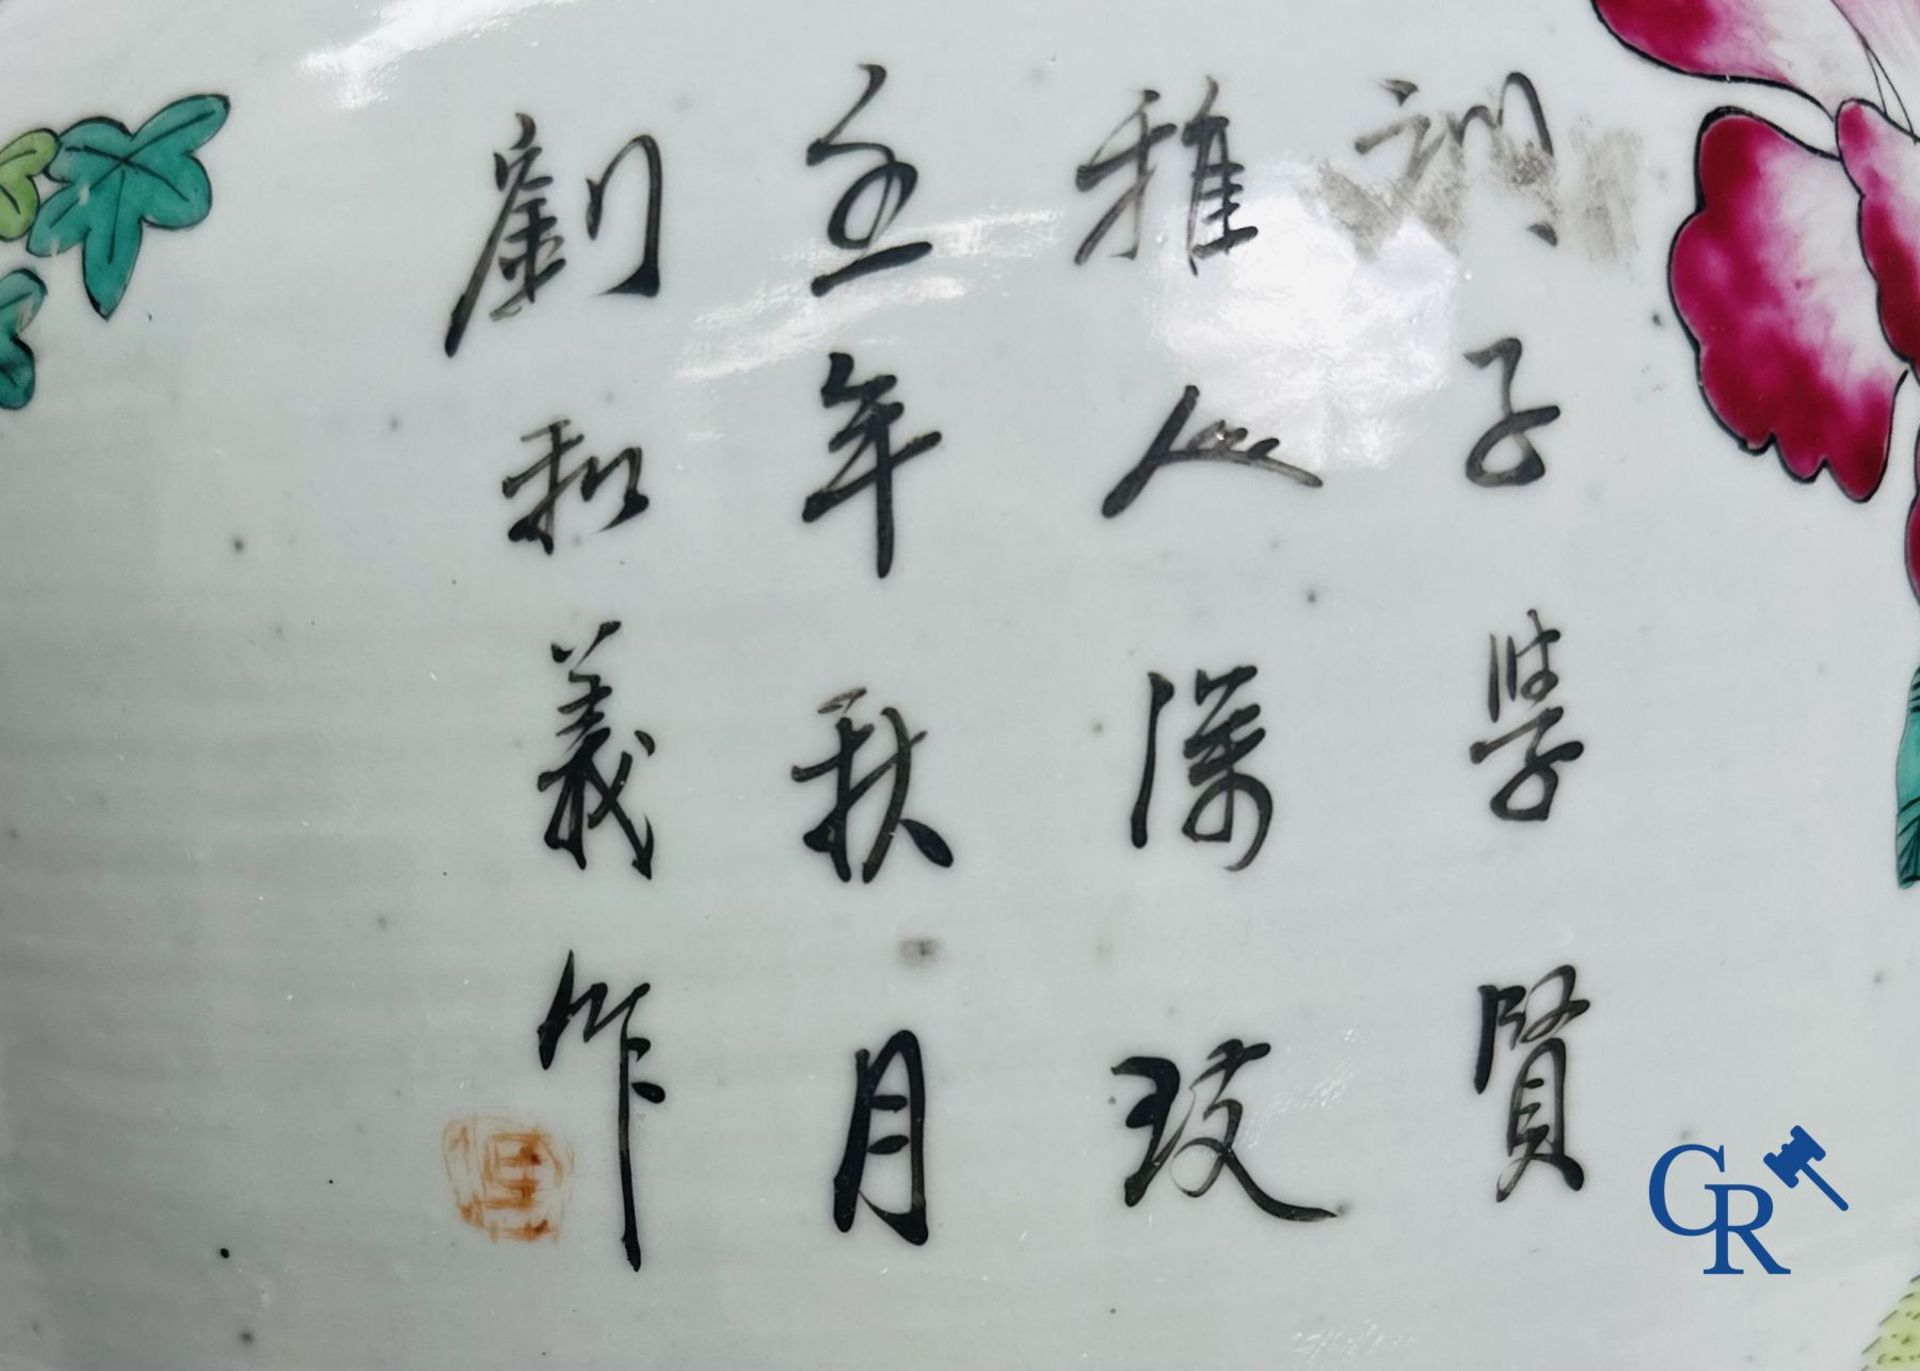 訓子學賢
雅人深玫
壬年秋月
劉和義作
CR